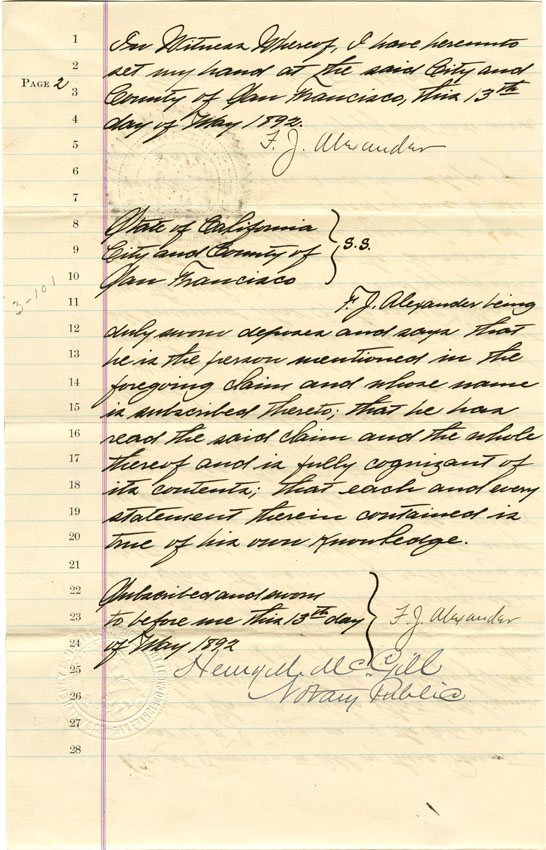 PAGE 2
1 In Witness Whereof, I have hereunto
2 set my hand at the said City and
3 County of San Francisco, this 13th
4 day of May 1892.
5 F. J. Alexander
6
7
8 State of California
9 City and County of } S.S.
10 San Francisco
3-101
11 F. J. Alexander being
12 duly sworn deposes and says that
13 he is the person mentioned in the
14 foregoing claim and whose name
15 is subscribed thereto; that he has
16 read the said claim and the whole
17 thereof and is fully cognizant of
18 its contents; that each and every
19 statement therein contained is
20 true of his own knowledge.
21
22 Subscribed and sworn
23 to before me this 13th day } F. J. Alexander
24 of May 1892
25 Henry M. McGill
26 Notary Public
27
28